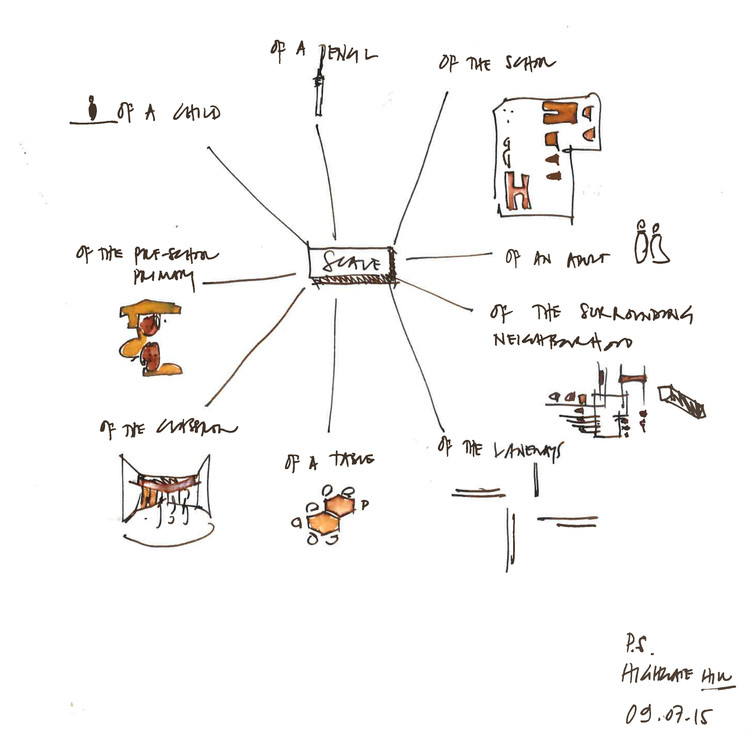 OF A PENCIL
OF THE SCHOOL
OF A CHILD
SCALE
OF AN ADULT
OF THE PRE-SCHOOL
PRIMARY
OF THE SURROUNDING
NEIGHBORHOOD
OF THE CLASSROOM
OF A TABLE
OF THE LANEWAYS
P.S.
HIGHGATE HILL
09.07.15